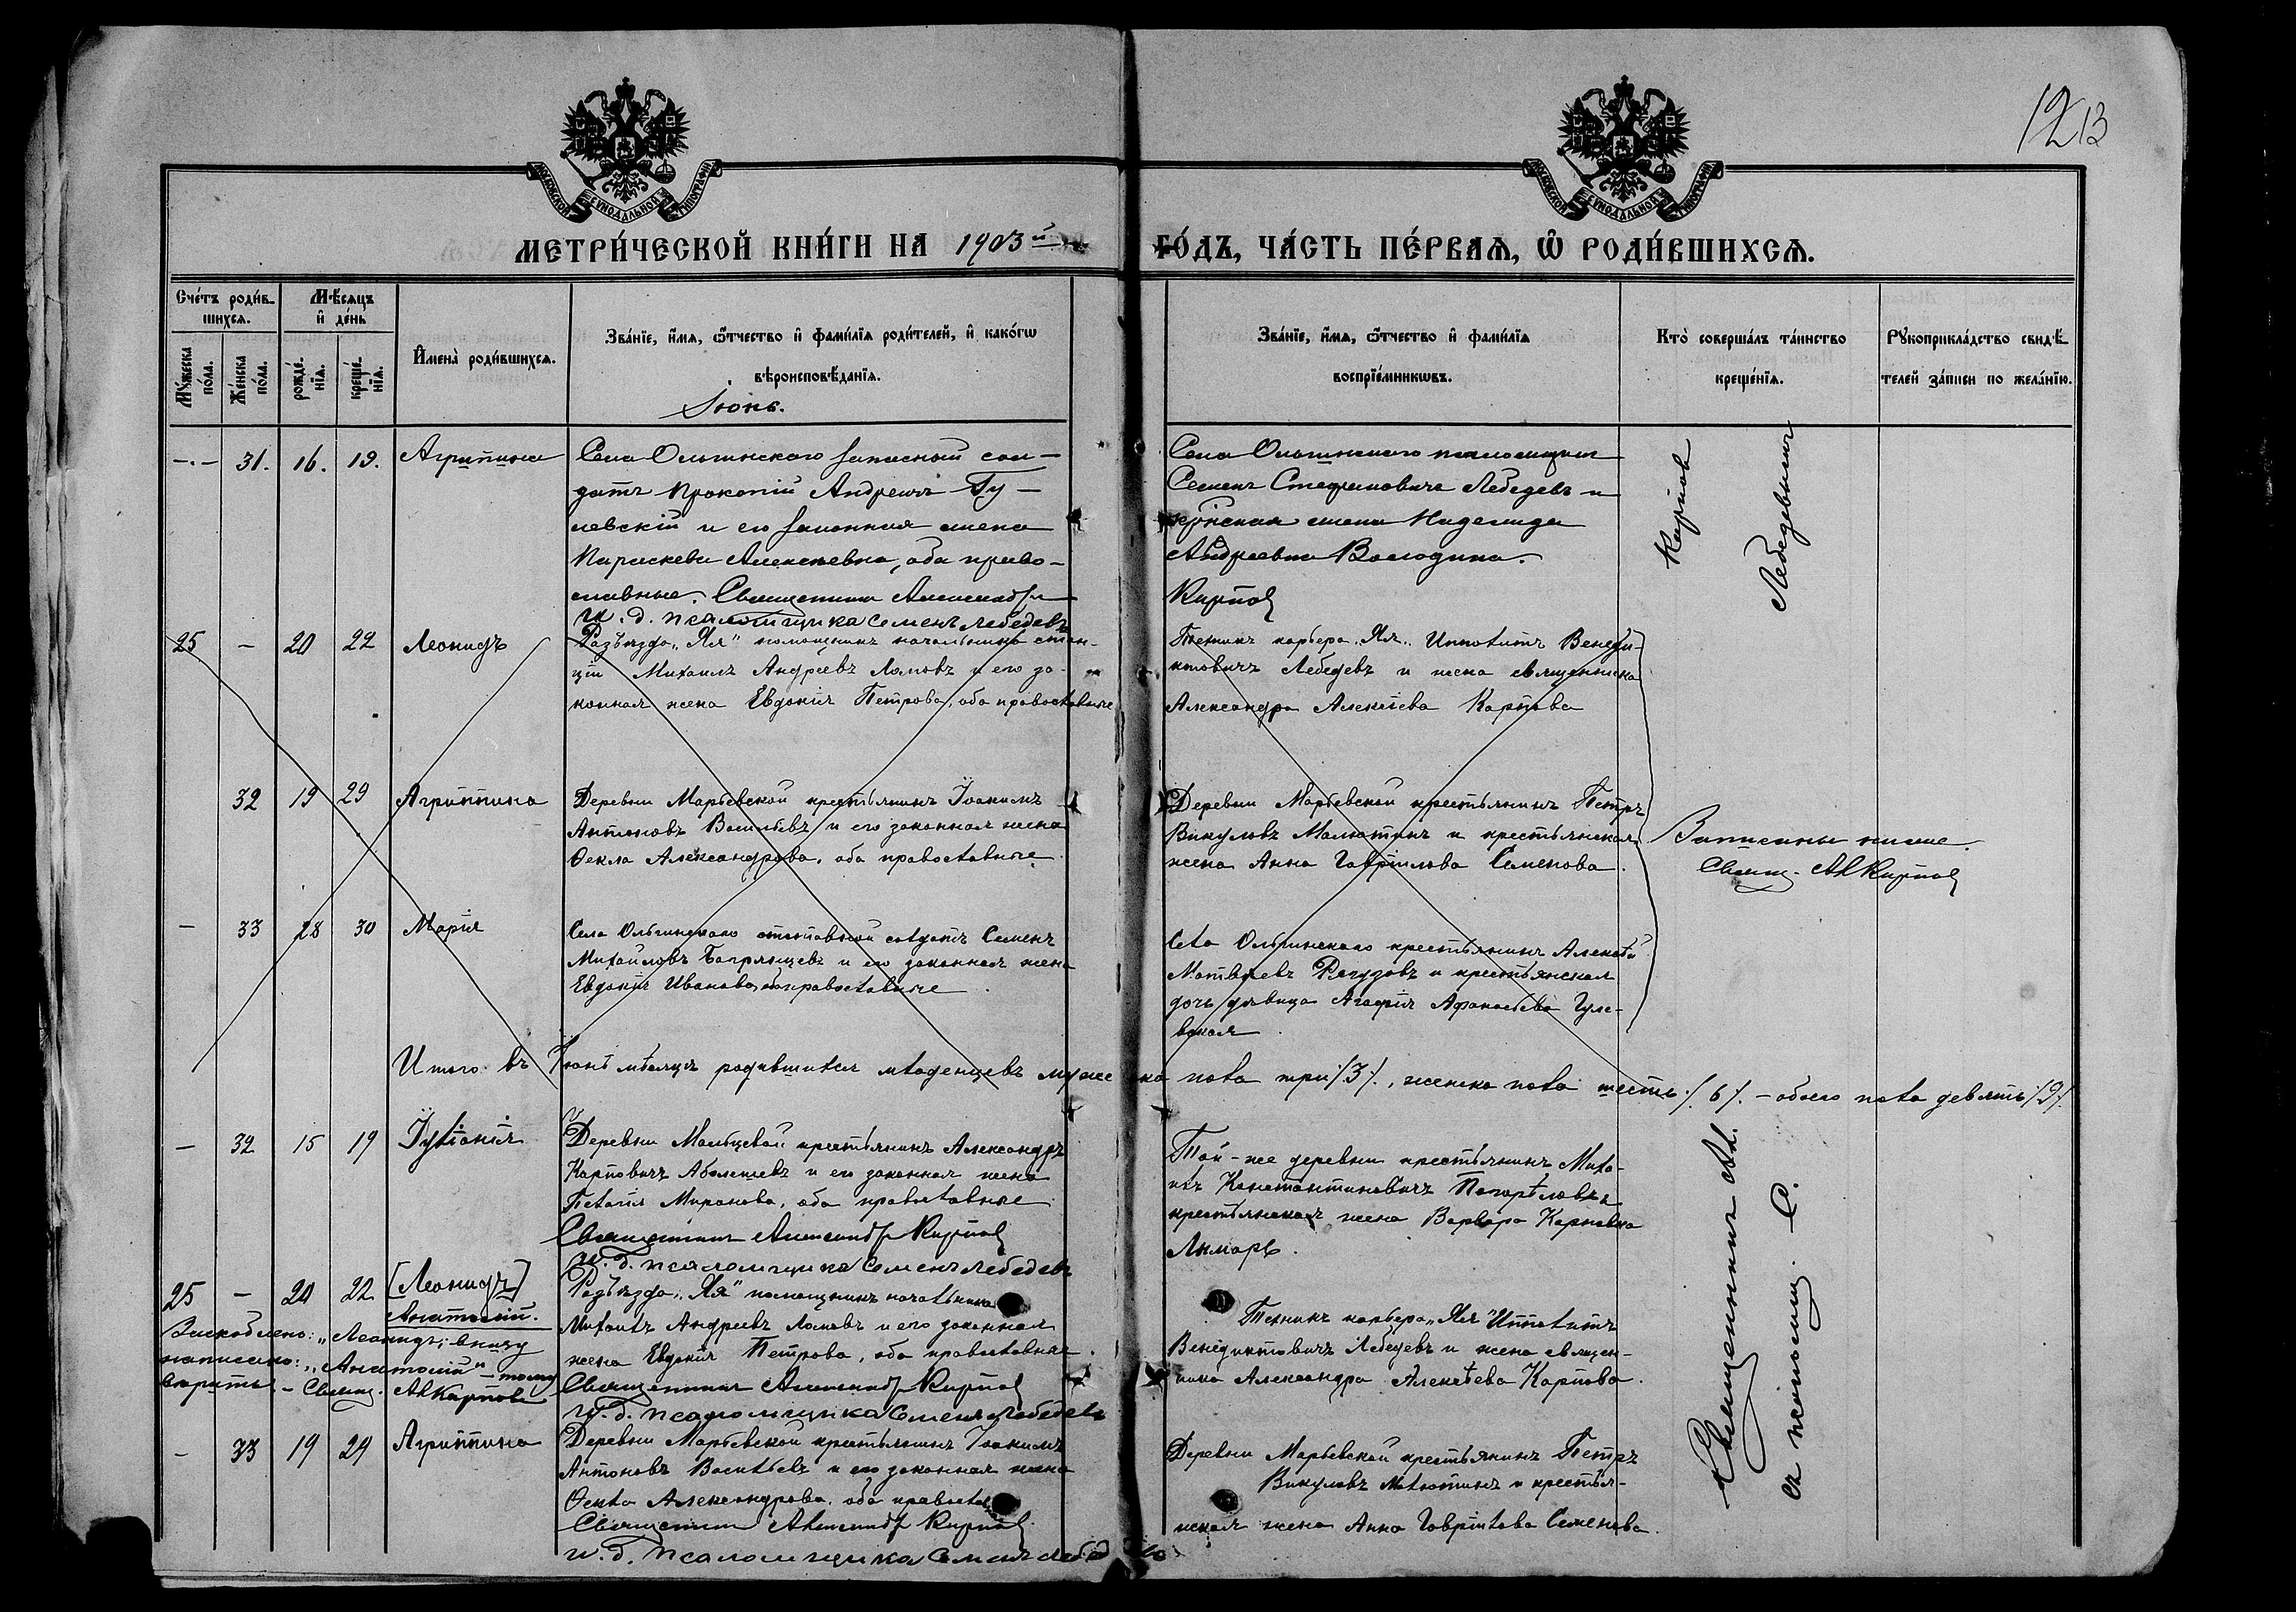 12 13
МОСКОВСКОЙ СѴНОДАЛЬНОЙ ТИПОГРАФІИ
МОСКОВСКОЙ СѴНОДАЛЬНОЙ ТИПОГРАФІИ
МЕТРИ́ЧЕСКОЙ КНИ́ГИ НА 1903й
ГО́ДЪ, ЧА́СТЬ ПЕ́РВАѦ, Ѿ РОДИ́ВШИХСѦ.
Сче́тъ роди́в-
шихсѧ.
Мꙋ́жеска по́ла.
Же́нска по́ла.
Мѣ́сѧцъ и҆ де́нь
рожде́-нїѧ.
креще́-нїѧ.
И҆мена̀ роди́вшихсѧ.
Зва́нїе, и҆́мѧ, ѻ҆́тчество и҆ фамѝлїѧ роди́телей, и҆ како́гѡ
вѣроисповѣ́данїѧ.
Зва́нїе, и҆́мѧ, ѻ҆́тчество и҆ фамѝлїѧ
воспрїе́мникѡвъ.
Кто̀ соверша́лъ та́инство
креще́нїѧ.
Рꙋкоприкла́дство свидѣ́-
телей за́писи по жела́нїю.
Іюнь.
-.- 31. 16. 19. Агрипина
Села Ольгинского запасный сол-
датъ Прокопій Андреевъ Гу-
левскій и его законная жена
Параскева Алексеевна, оба право-
славные. Священникъ Александръ
Карповъ
И. д. псаломщика Семенъ Лебедевъ
Села Ольгинского псаломщикъ
Семенъ Стефановичъ Лебедевъ и
жена Надежда
Андреевна Володина.
Карповъ
Лебедевымъ
25 - 20 22 Леонидъ
Разъѣзда „Яя" помощникъ начальника стан-
ціи Михаилъ Андреевъ Ломовъ и его за-
конная жена Евдокія Петрова, оба православные
Техникъ карьера „Яя" Ипполитъ Венеди-
ктовичъ Лебедевъ и жена священника
Александра Алексѣева Карпова
32 19 29 Агриппина
Деревни Марьевской крестьянинъ Іоакимъ
Антоновъ Васильевъ и его законная жена
Ѳекла Александрова, оба православные.
Деревни Марьевской крестьянинъ Петръ
Викуловъ Малютинъ и крестьянская
жена Анна Гавріилова Семенова.
Записаны ниже.
Свящ. Ал Карповъ
- 33 28 30 Марія
Села Ольгинскаго отставной солдатъ Семенъ
Михайловъ Багрянцевъ и его законная жена
Евдокія Иванова, оба православные.
Села Ольгинскаго крестьянинъ Алексѣй
Матвѣевъ Рагузовъ и крестьянская
дочь дѣвица Агафія Афанасьева Гуле-
вская.
Итого въ Іюнѣ мѣсяцѣ родившихся младенцевъ мужеска пола три /3/., женска пола шесть /6/. - обоего пола девять /9/.
- 32 15 19 Іуліанія
Деревни Мальцевой крестьянинъ Александръ
Карповичъ Аболешевъ и его законная жена
Пелагія Миронова, оба православные
Священникъ Александръ Карповъ
И. д. псаломщика Семенъ Лебедевъ
Той-же деревни крестьянинъ Миха-
илъ Константиновичъ Погорѣловъ и
крестьянская жена Варвара Карповна
Лимарь.
25 - 20 22 [Леонидъ]
Анатолій.
Заскоблено: „Леонидъ; внизу
написано: „Анатолій" - тому
вѣрить. - Свящ. Ал Карповъ
Разъѣзда „Яя" помощникъ начальника
Михаилъ Андреевъ Ломовъ и его законная
жена Евдокія Петрова, оба православные.
Священникъ Александръ Карповъ
И. д. псаломщика Семенъ Лебедевъ
Техникъ карьера „Яя" Ипполитъ
Венедиктовичъ Лебедевъ и жена священ-
ника Александра Алексѣева Карпова.
- 33 19 29 Агриппина
Деревни Марьевской крестьянинъ Іоакимъ
Антоновъ Васильевъ и его законная жена
Ѳекла Александрова, оба правосла
Священникъ Александръ Карповъ
И. д. псаломщика Семенъ Лебед
Деревни Марьевской крестьянинъ Петръ
Викуловъ Малютинъ и крестья-
нская жена Анна Гавріилова Семенова.
Священникъ Ал.
съ псаломщ. С.